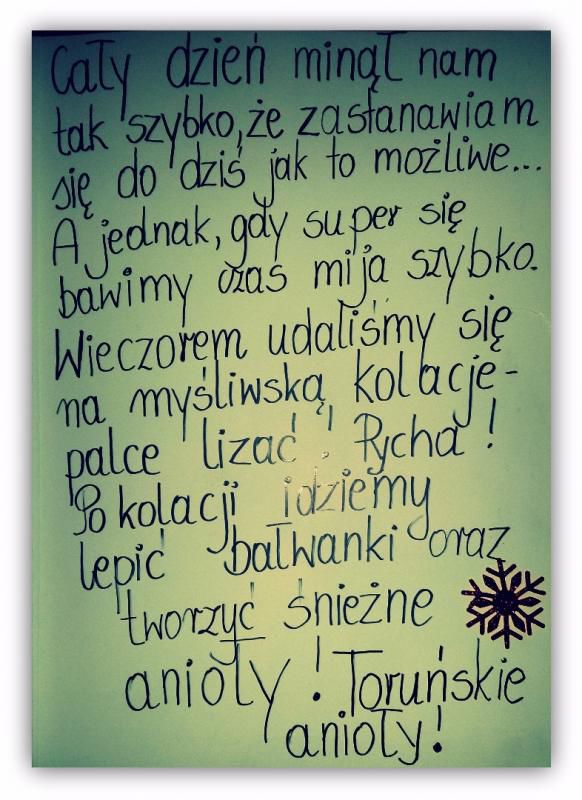 Cały dzień minął nam
tak szybko, że zastanawiam
się do dziś jak to możliwe...
A jednak, gdy super się
bawimy czas mija szybko.
Wieczorem udaliśmy się
na myśliwską kolację-
palce lizać! Pycha!
Po kolacji idziemy
lepić bałwanki oraz
tworzyć śnieżne
anioły! Toruńskie
anioły!